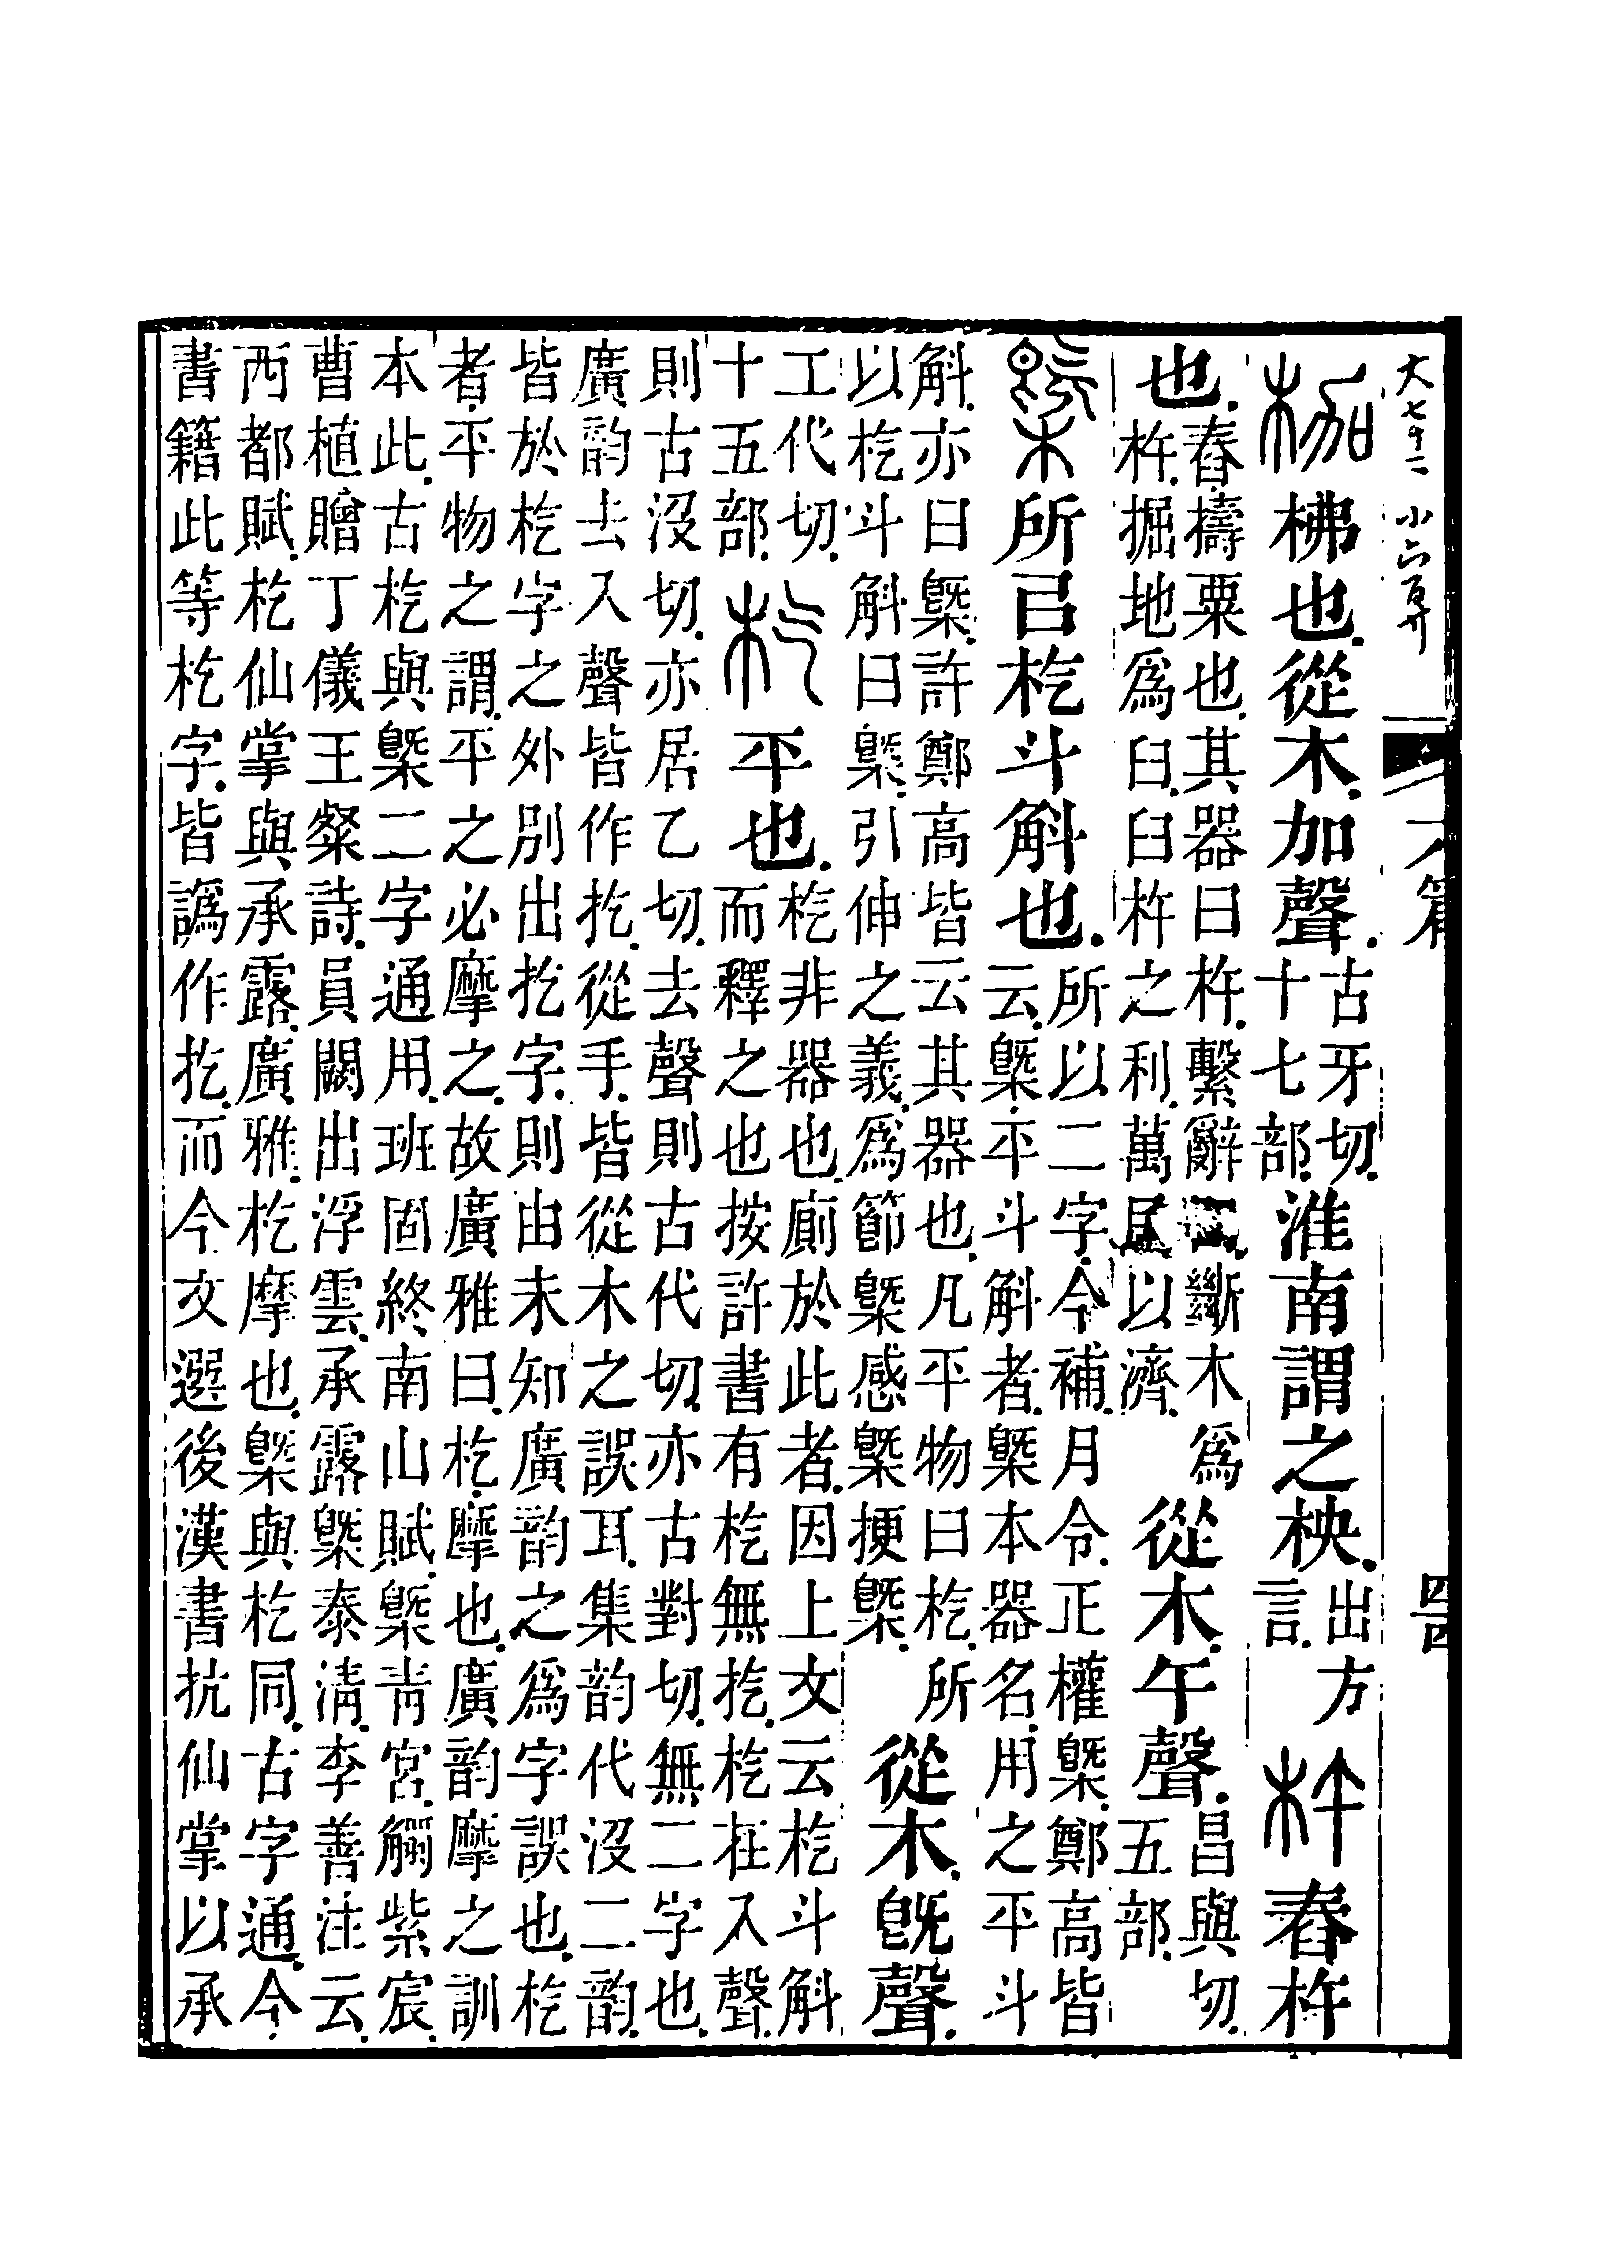 大七十二 小六百廿
篇
四四
枷 柫也從木加聲古牙切十七部淮南謂之柍出方言杵 舂杵
也舂擣粟也其器曰杵繫辭斷木爲杵掘地爲臼臼杵之利萬民以濟從木午聲昌與切五部
槩 所㠯杚斗斛也所以二字今補月令正權槩鄭高皆云槩平斗斛者槩本器名用之平斗
斛亦曰槩許鄭高皆云其器也凡平物曰杚所以杚斗斛曰槩引伸之義爲節槩感槩挭槩從木旣聲
工代切十五部杚 平也杚非器也廁於此者因上文云杚斗斛而釋之也按許書有杚無扢杚在入聲
則古沒切亦居乙切去聲則古代切亦古對切無二字也
廣韵去入聲皆作扢從手皆從木之誤耳集韵代沒二韵
皆於杚字之外別出扢字則由未知廣韵之爲字誤也杚
者平物之謂平之必摩之故廣雅曰杚摩也廣韵摩之訓
本此古杚與槩二字通用班固終南山賦槩青宮觸紫宸
曹植贈丁儀王粲詩員闕出浮雲承露槩泰淸李善注云
西都賦杚仙掌與承露廣雅杚摩也槩與杚同古字通今
書籍此等杚字皆譌作扢而今文選後漢書抗仙掌以承